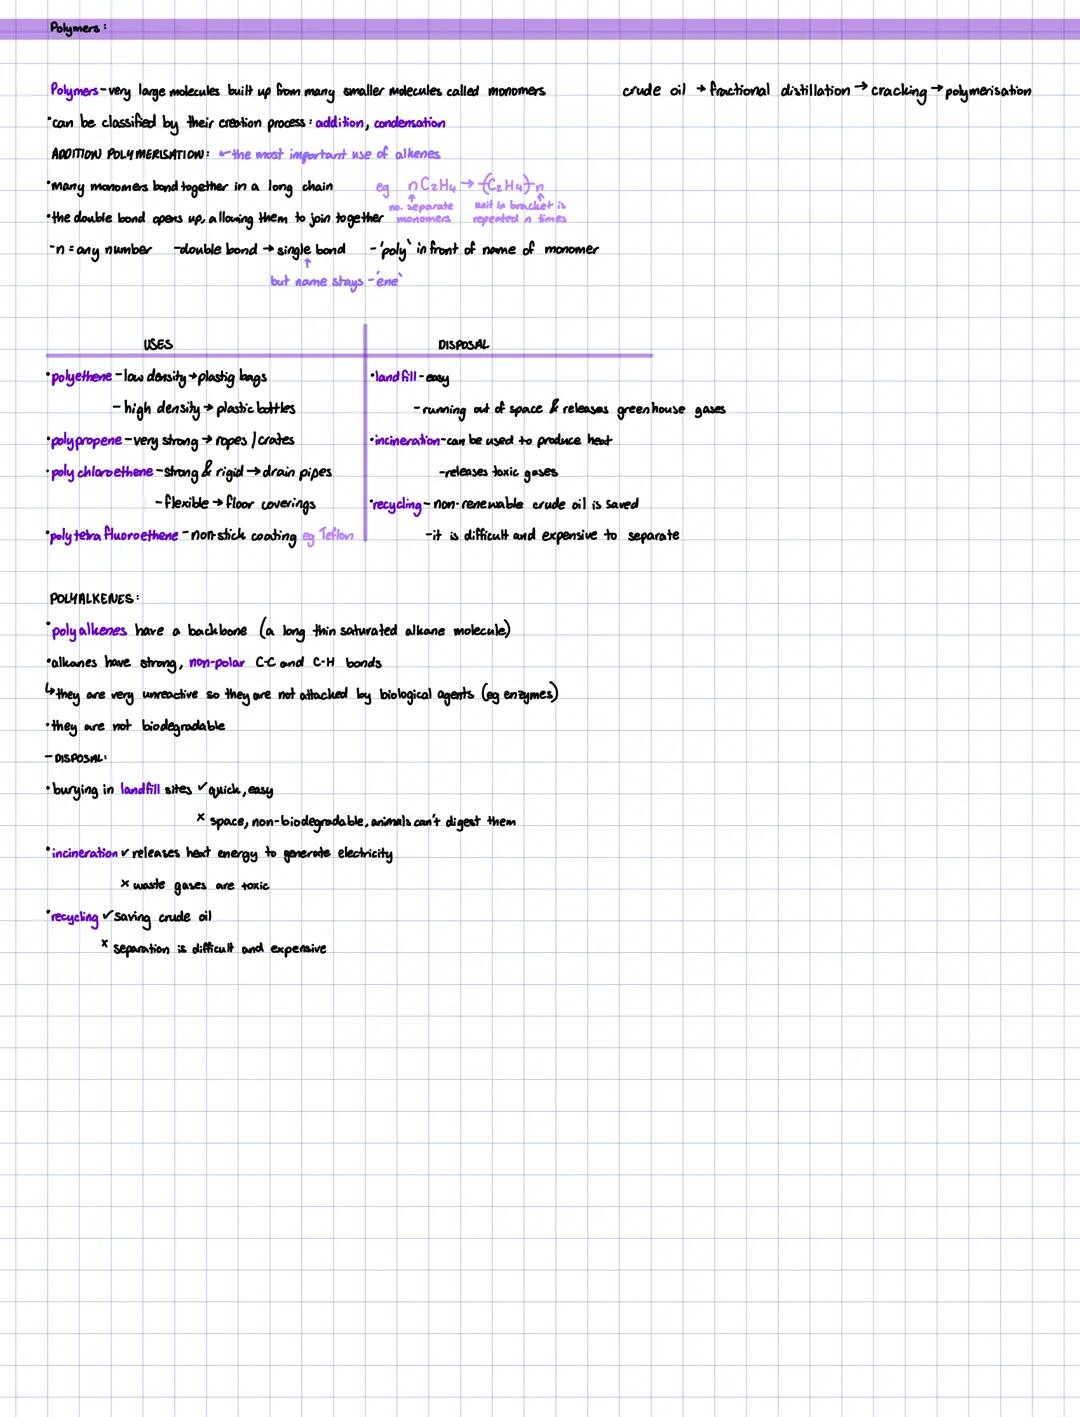 Polymers:
Polymers - very large molecules built up from many smaller molecules called monomers
crude oil → fractional distillation → cracking → polymerisation
•can be classified by their creation process: addition, condensation
ADDITION POLYMERISATION: ← the most important use of alkenes
•many monomers bond together in a long chain
eg nC2H4 → (C2H4)n
no. separate monomers
unit in bracket is repeated n times
•the double bond opens up, allowing them to join together
-n = any number -double bond → single bond -'poly' in front of name of monomer
↑
but name stays -'ene'
USES
DISPOSAL
•polyethene - low density → plastig bags
- high density → plastic bottles
•polypropene - very strong → ropes / crates
•poly chloroethene - strong & rigid → drain pipes
- flexible → floor coverings
•poly tetra fluoroethene - non-stick coating eg Teflon
•landfill - easy
- running out of space & releases greenhouse gases
•incineration - can be used to produce heat
-releases toxic gases
•recycling - non-renewable crude oil is saved
-it is difficult and expensive to separate
POLYALKENES:
•polyalkenes have a backbone (a long thin saturated alkane molecule)
•alkanes have strong, non-polar C-C and C-H bonds
↳they are very unreactive so they are not attacked by biological agents (eg enzymes)
•they are not biodegradable
- DISPOSAL:
•burying in landfill sites ✓ quick, easy
× space, non-biodegradable, animals can't digest them
•incineration ✓ releases heat energy to generate electricity
× waste gases are toxic
•recycling ✓ saving crude oil
× separation is difficult and expensive